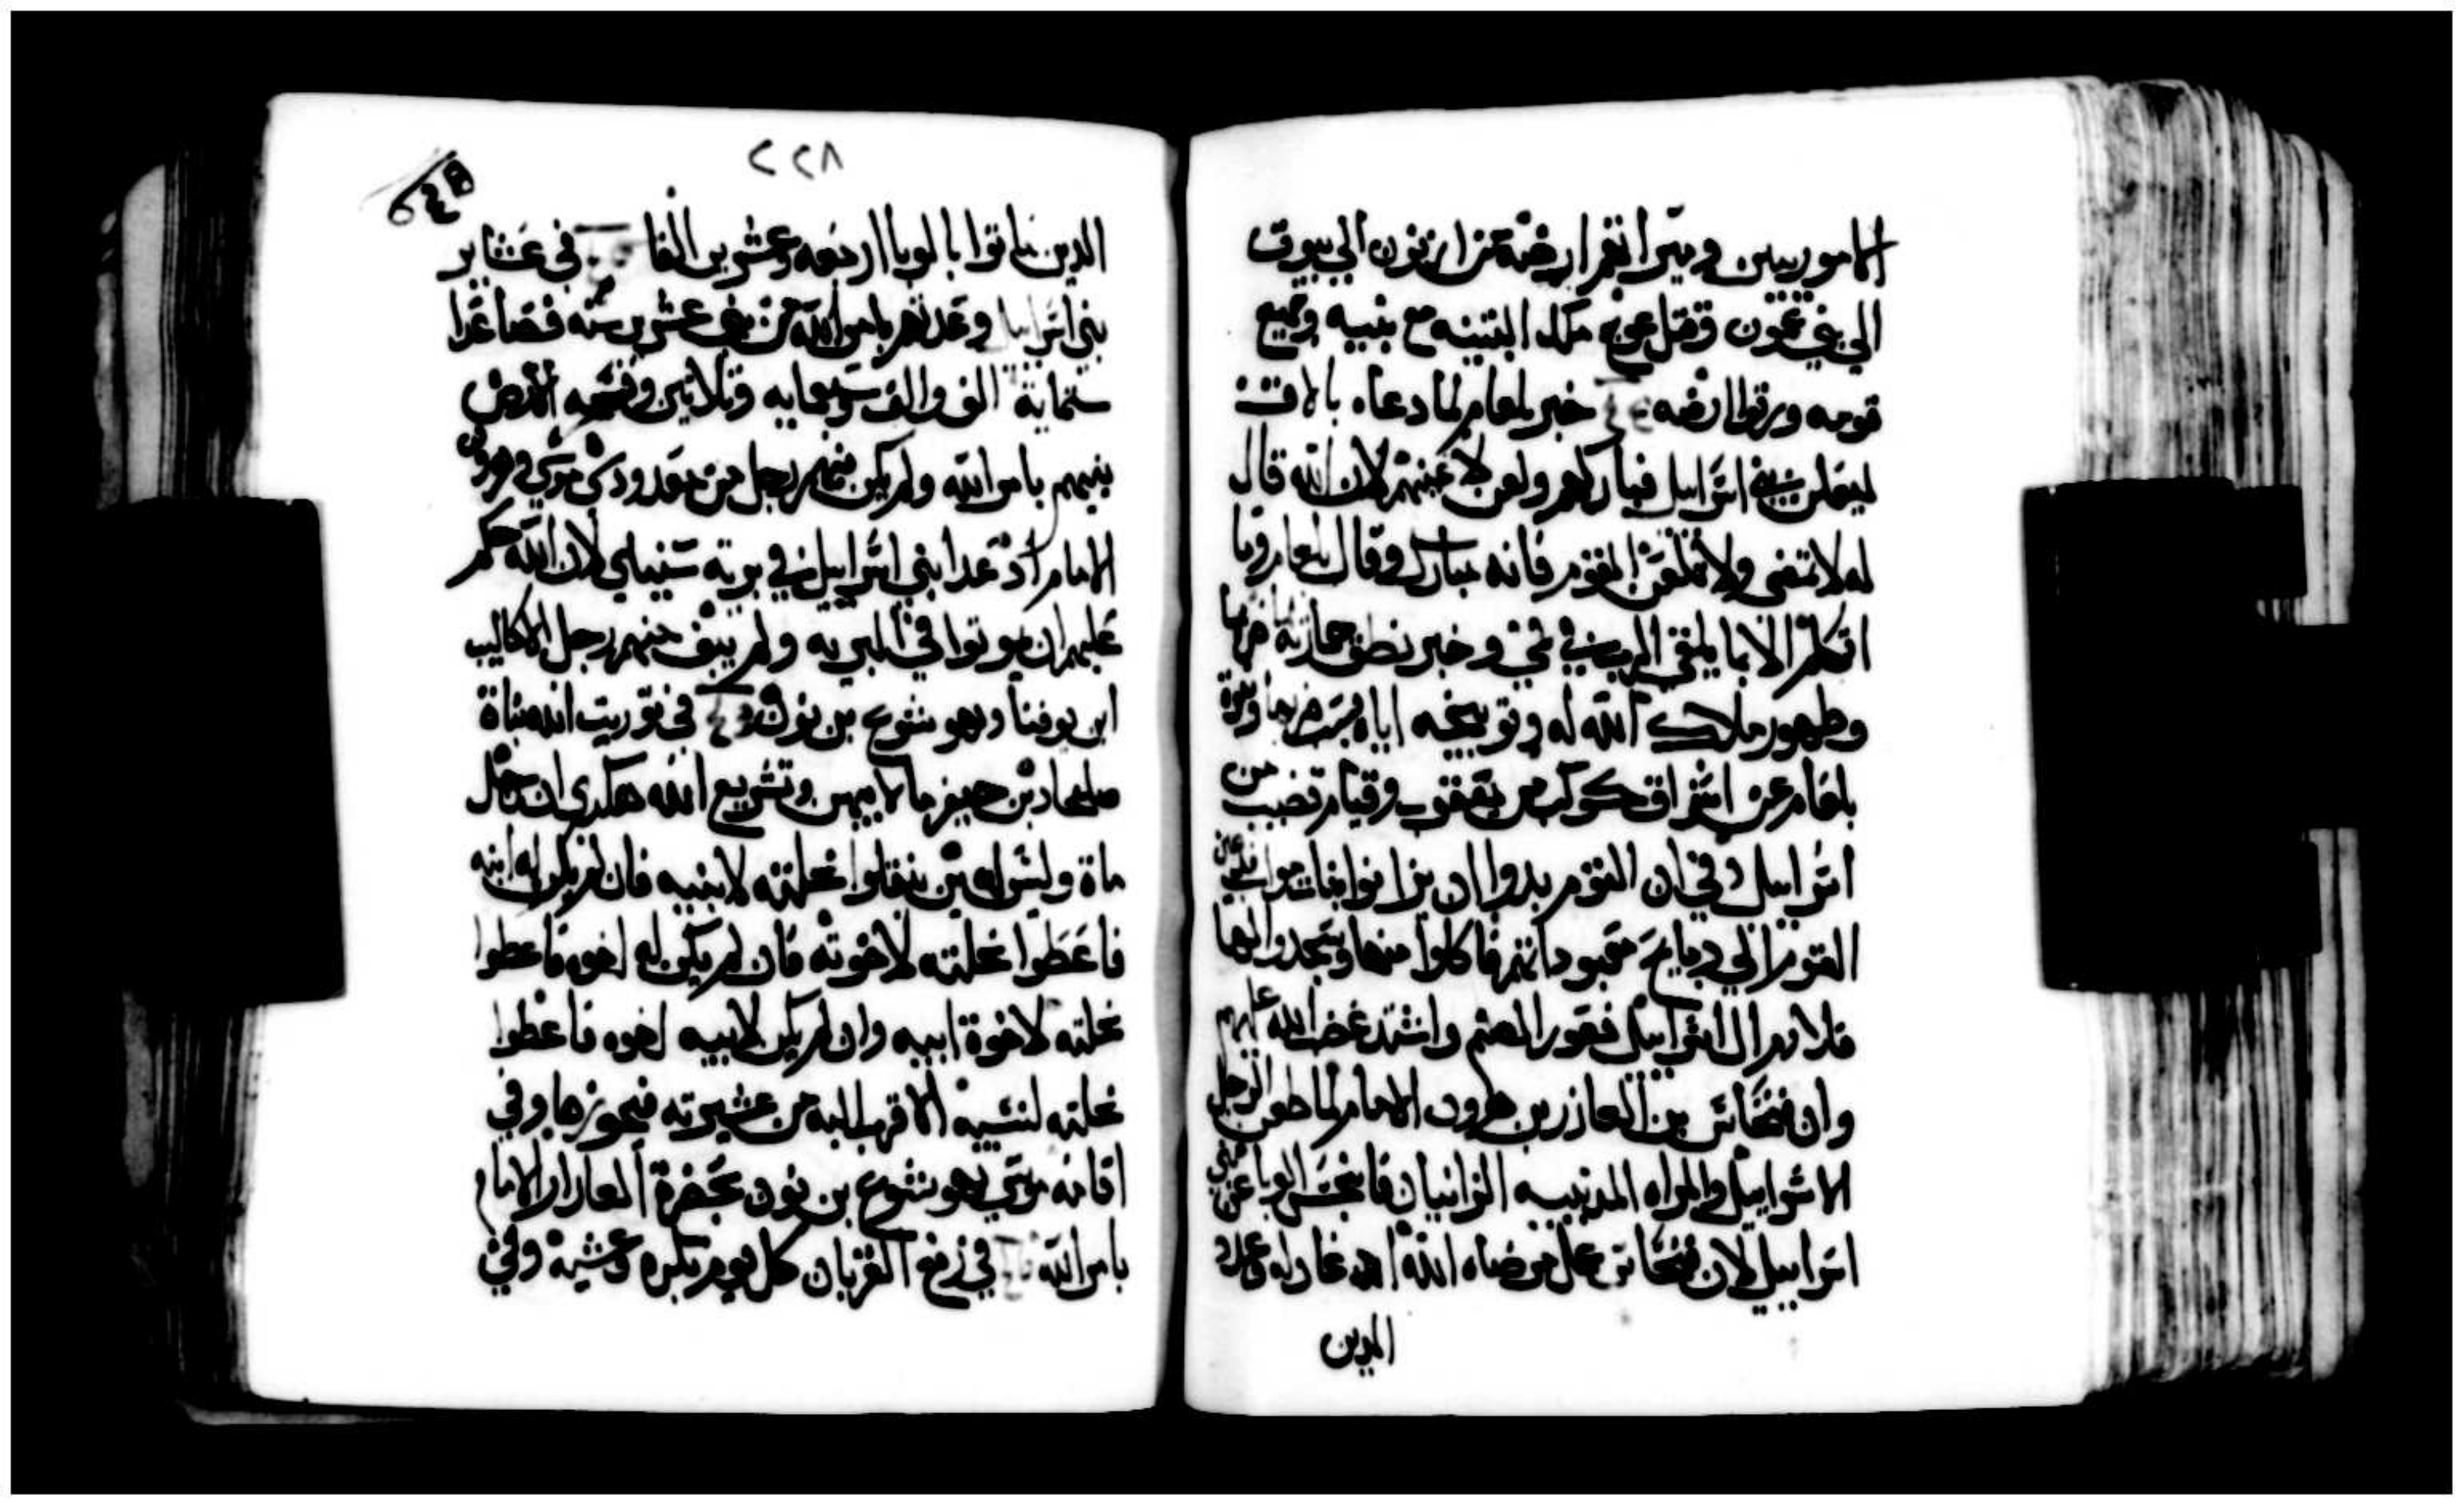 الاموريين وميراثهم ارضه من ارنون الي يبوق
الي بني عمون وقتل عوج ملك البتنيه مع بنيه وجميع
قومه وورثوا ارضه خبر بلعام لما دعاه بالاق
ليلعن بني اسراييل فباركهم ولعن لاعنيهم لان الله قال
له لا تمضي ولا تلعن القوم فانه مبارك وقال بلعام وما
اتكلم الا بما يلقي الرب في في وخبر نطق حمارته
وظهور ملاك الله له وتوبيخه اياه بسبب ضربها ونبوة
بلعام عن اشراق كوكب من يعقوب وقيام قضيب من
اسراييل وفي ان القوم بدوا ان يزانوا بنات مواب
القوم الي دبايح معبوداتهم فاكلوا منها وسجدوا لها
فلازم ال اسراييل فغور الصنم واشتد غضب الله عليهم
وان فنحاس بن العازر بن هرون الامام لما طعن الرجل
الاسراييلي والمراه المدينيه الزانيان فانحبس الوبا عن بني
اسراييل لان فنحاس عمل مرضاه الله
الدين
٢٢٨
الدين ماتوا بالوبا اربعه وعشرين الفا في عشاير
بني اسراييل وعددهم بامر الله من بني عشرين سنه فصاعدا
ستماية الف والف وسبعمايه وتلاتين وقسمه الارض
بينهم بامر الله ولم يكن منهم رجل من معدودي موسي وهرون
الامام اد عدا بني اسراييل في برية سينيا لان الله حكم
عليهم ان يموتوا في البريه ولم يبق منهم رجل الا كاليب
ابن يوفنا ويهوشوع بن نون في توريت الله بناة
صلفحاد بن حيفر مال ابيهن وتشريع الله هكدي ان رجل
ماة وليس له بنين ينقلوا نحلته لابنته فان لم يكن له ابنه
فاعطوا نحلته لاخوته فان لم يكن له اخوه فاعطوا
نحلته لاخوة ابيه وان لم يكن لابيه اخوه فاعطوا
نحلته لنسيبه الاقرب اليه من عشيرته فيحوزها وفي
اقامه موسي يهوشوع بن نون بحضرة العازار الامام
بامر الله في رفع القربان كل يوم بكره وعشيه وفي